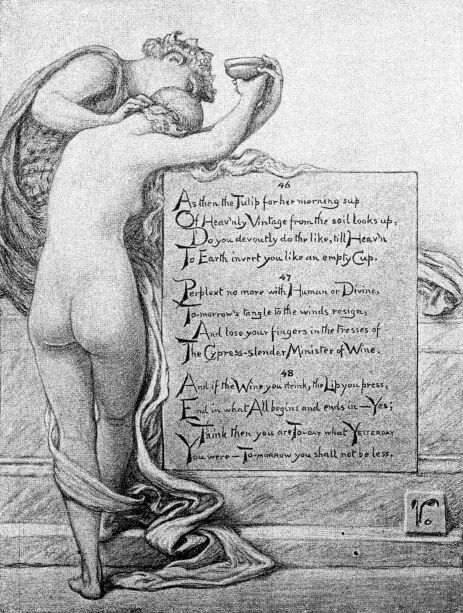 46
As then the Tulip for her morning sup
Of Heav'nly Vintage from the soil looks up,
Do you devoutly do the like, till Heav'n
To Earth invert you like an empty Cup.
47
Perplext no more with Human or Divine,
To-morrow's tangle to the winds resign,
And lose your fingers in the tresses of
The Cypress-slender Minister of Wine.
48
And if the Wine you drink, the Lip you press,
End in what All begins and ends in — Yes;
Think then you are To-day what Yesterday
You were — To-morrow you shall not be less.